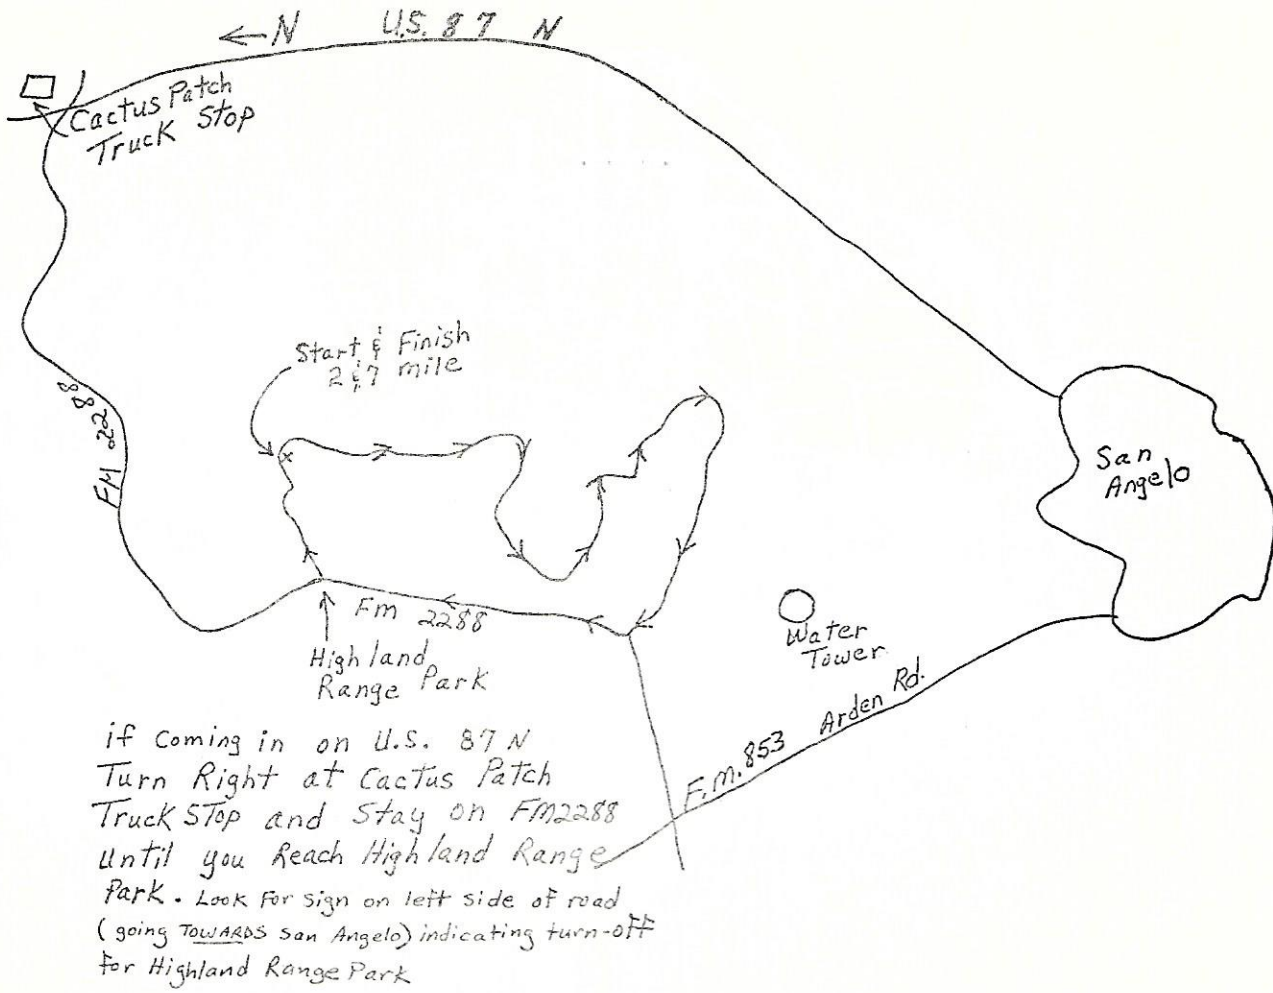 ← N U.S. 87 N
Cactus Patch
Truck Stop
Start & Finish
2 & 7 mile
FM 2288
San
Angelo
Fm 2288
Water
Tower
Highland
Range Park
F.M. 853 Arden Rd.
if coming in on U.S. 87 N
Turn Right at Cactus Patch
Truck Stop and Stay on FM2288
until you Reach Highland Range
Park. Look For sign on left side of road
(going TOWARDS San Angelo) indicating turn-off
for Highland Range Park